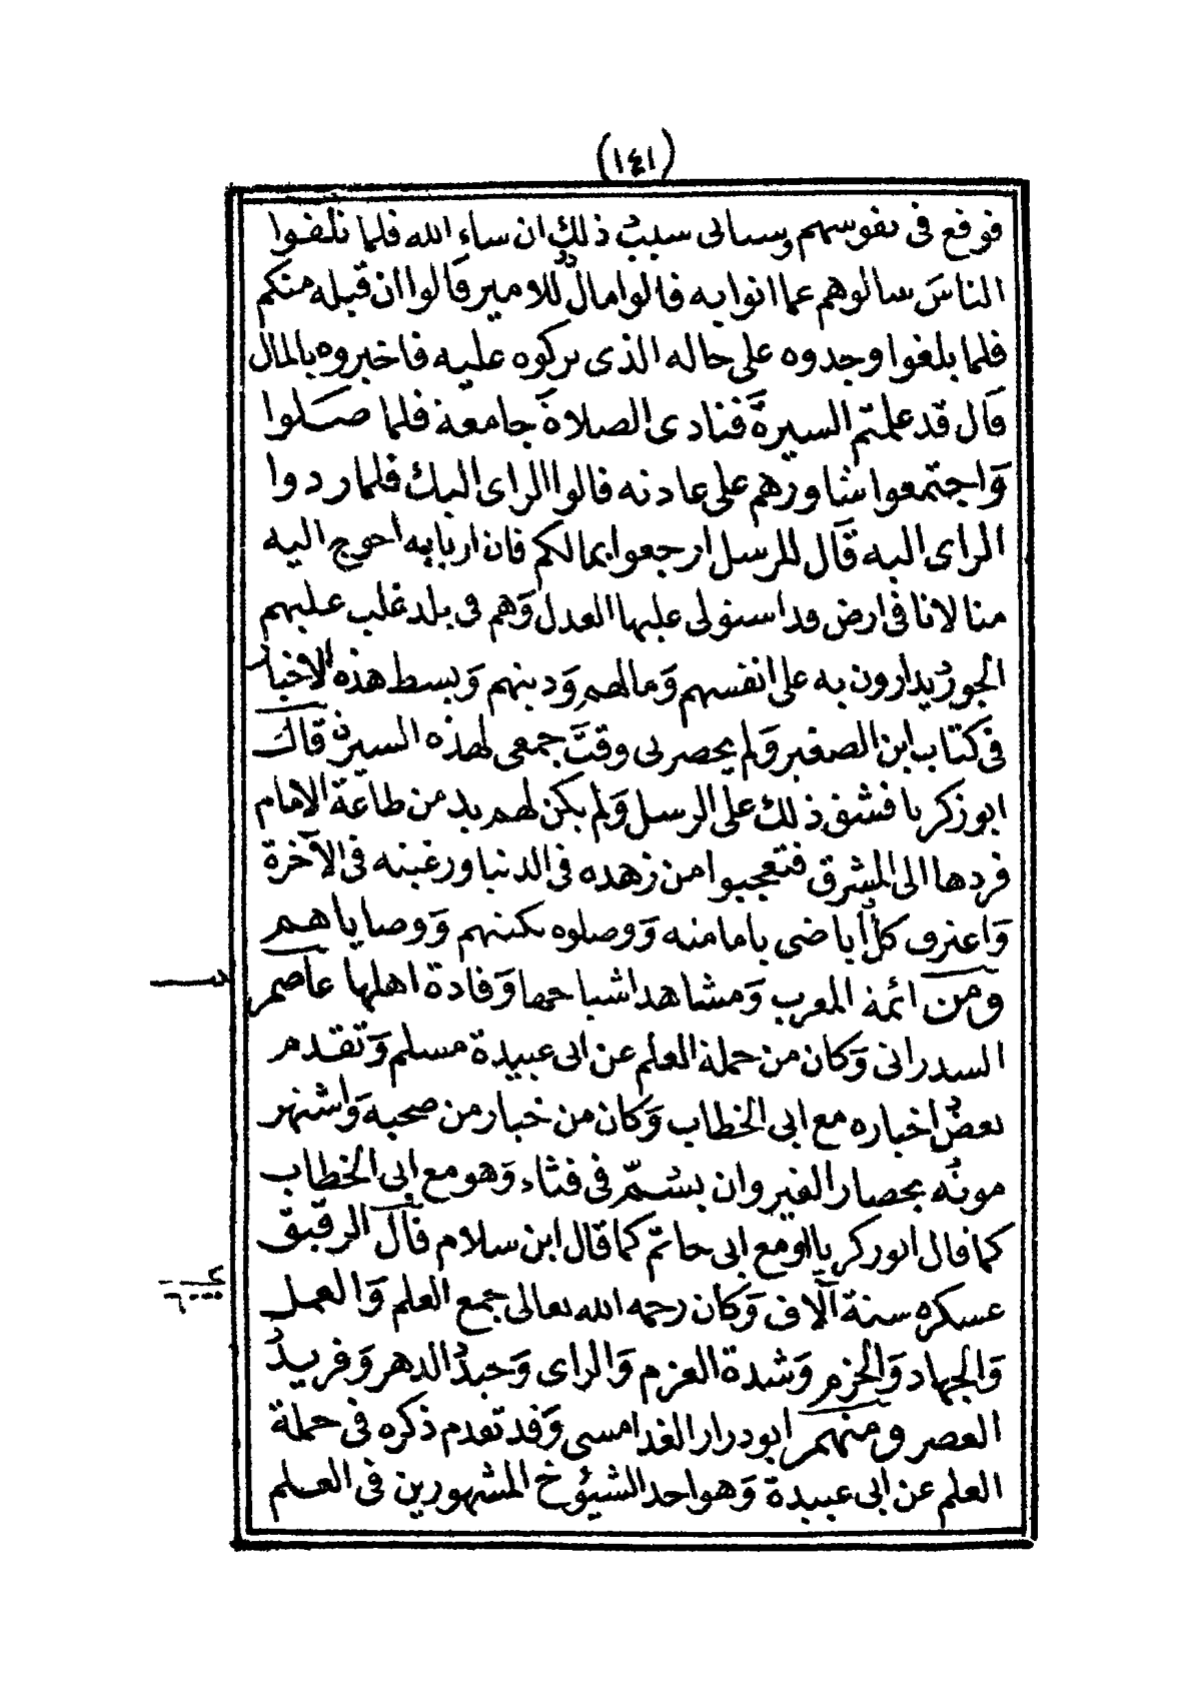 (١٤١)
فوقع فى نفوسهم وسياتى سبب ذلك ان شاء الله فلما تلقوا
الناسَ سالوهم عما اتوا به قالوا مال للامير قَالوا ان قبله منكم
فلما بلغوا وجدوه على حاله الذى تركوه عليه فاخبروه بالمال
قَال قد علمتم السيرةَ فنادى الصلاةَ جامعة فلما صَلوا
وَاجتمعوا شاورهم على عادته قالوا الراى اليك فلما ردوا
الراى اليه قَال للرسل ارجعوا بمالكم فان اربابه احوج اليه
منا لانا فى ارض قد استولى عليها العدل وَهم فى بلد غلب عليهم
الجورُ يدارون به على انفسهم وَمالهم وَدينهم وَبسط هذه الاخبار
فى كتاب ابن الصغير وَلم يحضرنى وقتَ جمعى لهذه السير قالَ
ابو زكريا فشق ذلك على الرسل وَلم يكن لهم بد من طاعة الامام
فردها الى المشرق فتعجبوا من زهده فى الدنيا ورغبته فى الآخرة
وَاعترف كلُ اباضى بامامته وَوصلوه بكتبهم وَوصاياهم
ومن ائمة المغرب وَمشاهد اشياخها وَقادة اهلها عاصم
السدراتى وَكان من حملة العلم عن ابى عبيدة مسلم وَتقدم
بعضُ اخباره مع ابى الخطاب وَكان من خيار من صحبه وَاشتهر
موتُه بحصار القيروان بسُمّ فى قثاء وَهو مع ابى الخطاب
كما قال ابو زكريا او مع ابى حاتم كما قال ابن سلام قال الرقيق
عسكره ستة آلاف وَكان رحمه الله تعالى جمع العلم وَالعمل
وَالجهاد وَالحزم وَشدة العزم وَالراى وَحيدُ الدهر وَفريدُ
العصر ومنهم ابو درار الغدامسى وَقد تقدم ذكره فى حملة
العلم عن ابى عبيدة وَهو احد الشيوخ المشهورين فى العلم
٦٠٠٠